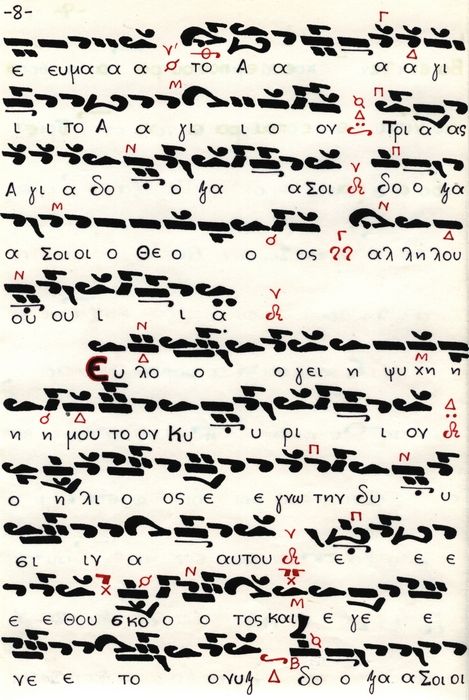 -8-
ε ευμα α α το Α α α α γι
ι ι το Α α γι ι ο ον Τρι α ας
Α γι α δο ο ξα α Σοι δο ο ξα
α Σοι οι ο Θε ο ο ος αλ λη λου
ου ου ι ι α
Ευ λο ο ο γει η ψυ χη η
η η μου το ον Κυ υ ρι ι ον
ο η λι ο ος ε ε γνω την δυ υ
σι ιν α αυτου ε ε ε
ε ε θου σκο ο ο τος και ε γε ε
νε ε το ο νυξ δο ο ξα α Σοι οι